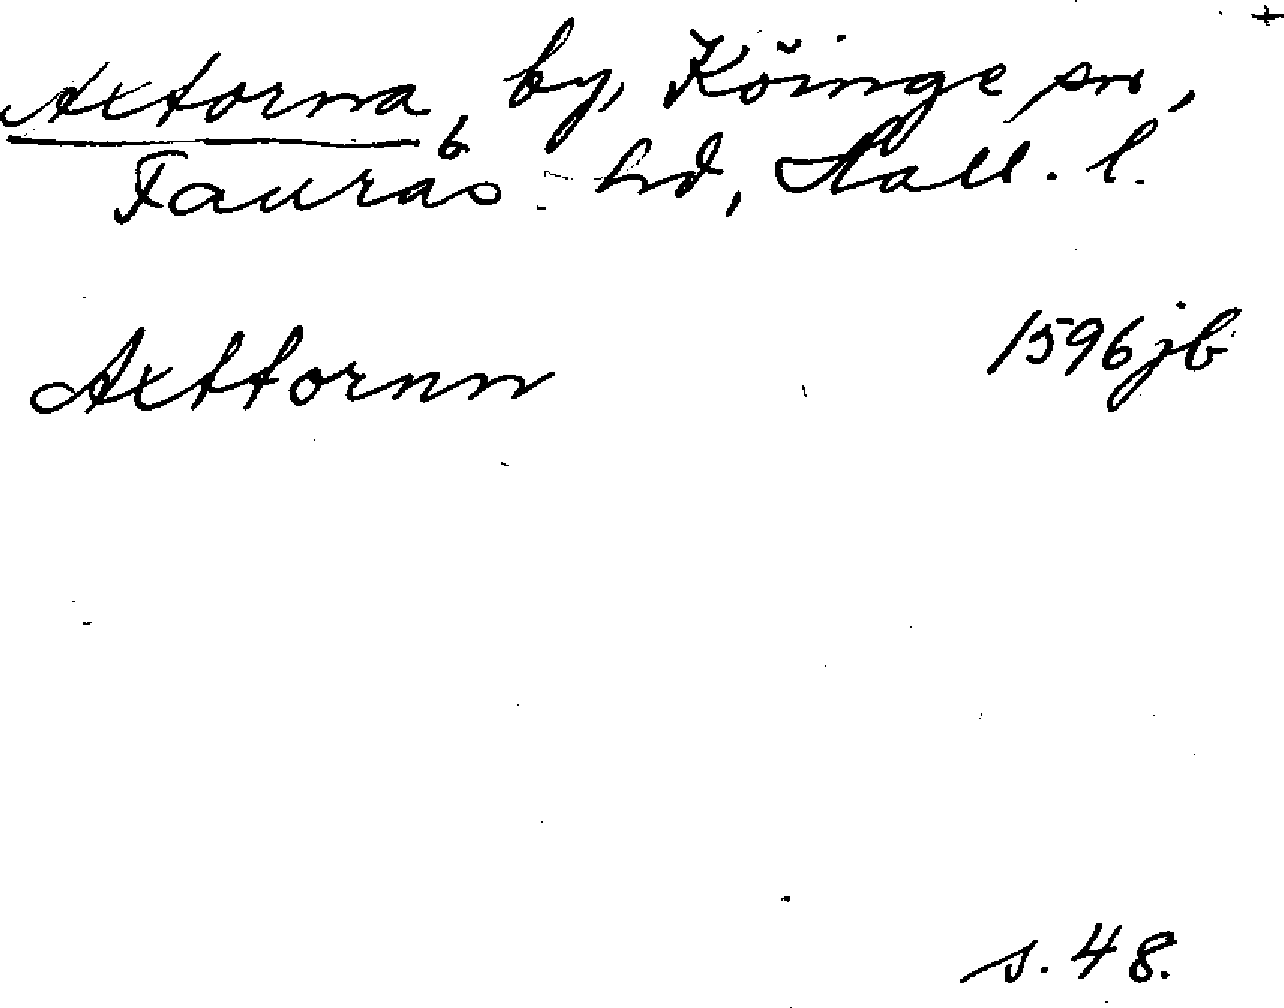 +
Axtorna, by, Köinge sn,
Faurås hd, Hall. l.
Axttornn 1596 jb
s. 48.